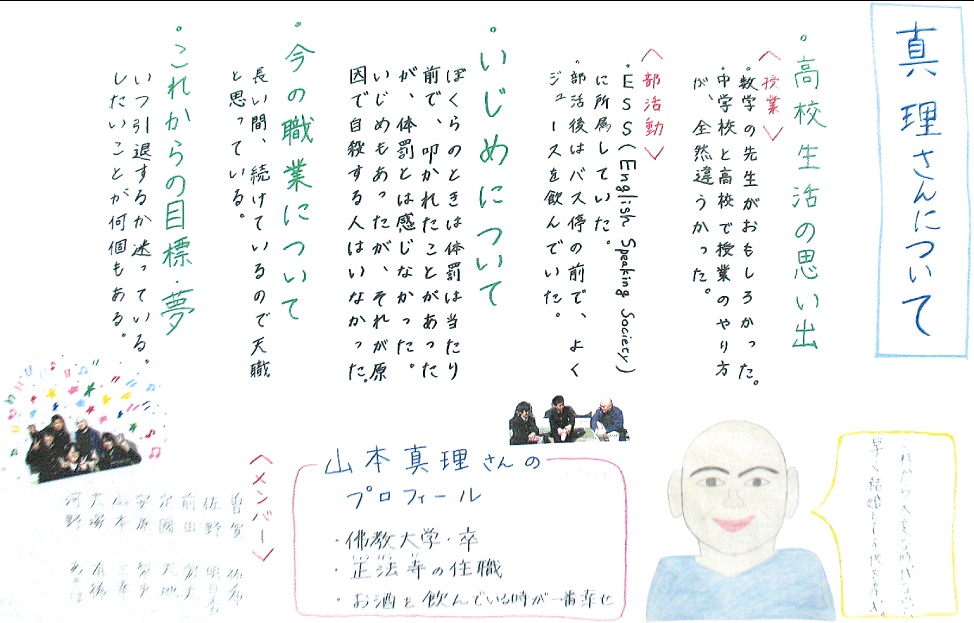 真理さんについて
・高校生活の思い出
〈授業〉
・数学の先生がおもしろかった。
・中学校と高校で授業のやり方
が、全然違うかった。
〈部活動〉
・ESS(English Speaking Society)
に所属していた。
・部活後はバス停の前で、よく
ジュースを飲んでいた。
・いじめについて
ぼくらのときは体罰は当たり
前で、叩かれたことがあった
が、体罰とは感じなかった。
いじめもあったが、それが原
因で自殺する人はいなかった。
・今の職業について
長い間、続けているので天職
と思っている。
・これからの目標・夢
いつ引退するか迷っている。
したいことが何個もある。
山本真理さんの
プロフィール
・佛教大学・卒
・正法寺の住職
・お酒を飲んでいる時が一番幸せ
〈メンバー〉
佐野
前田
安原
山本
大塚
河野